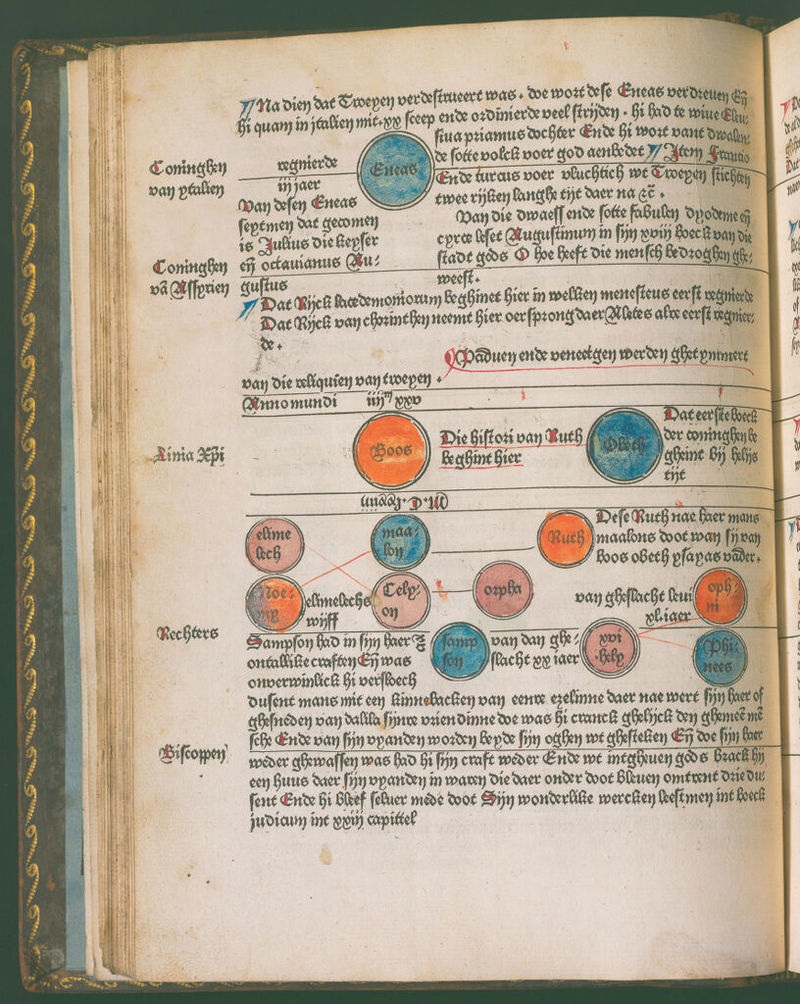 Na dien dat Troeyen verdestrueert was. doe wort dese Eneas verdreuen Eñ
hi quam in jtalien mit.xx sceep ende ordinierde veel strijden. hi had te wiue Eleu/
siua priamus dochter Ende hi wort vant dwalen/
de sotte volck voer god aenbedet Item Francio
Coninghen
van ytalien
regnierde
iij jaer
Eneas
Ende turcus voer vluchtich wt Troeyen stichten
twee rijken langhe tijt daer na ⁊č.
Van desen Eneas
septmen dat gecomen
is Julius die keyser
eñ octauianus Au/
gustus
Van die dwaesse ende sotte fabulen dyodeme eñ
cyrce leset Augustinum in sijn xviij boeck van die
stadt gods O hoe heeft die mensch bedroghen ghe/
weest.
Coninghen
vā Assyrien
Dat Rijck lacedemoniorum beghinet hier in welken menesteus eerst regnierde
Dat Rijck van chorinthen neemt hier oersprong daer Aletes alre eerst regnier/
de.
Paduen ende veneetgen werden ghetymmert
van die reliquien van troeyen.
Anno mundi iiijm xxv
Linia Xp̄i
Boos
Die histori van Ruth
beghint hier
Obeth
Dat eerste boeck
der coninghen be
gheint bij helijs
tijt
elime
lech
maa/
lon
Ruth
Dese Ruth nae haer mans
maalons doot wan sij van
boos obeth ysayas vader.
Noe/
my
elimelechs
wijff
Celp/
on
orpha
van gheslacht leui
xl. iaer
oph/
ni
Rechters
Sampson had in sijn haer
ontallike craften Eñ was
onverwinlick hi versloech
samp
son
van dan ghe/
slacht xx iaer
xvi
hely
Phi/
nees
dusent mans mit een kinnebacken van eenre ezelinne daer nae wert sijn haer of
ghesneden van dalila sijnre vriendinne doe was hi cranck ghelijck den ghemeē mē
sche Ende van sijn vyanden worden beyde sijn oghen wt ghesteken Eñ doe sijn haer
Biscoppen
weder ghewassen was had hi sijn craft weder Ende wt intgheuen gods brack hij
een huus daer sijn vyanden in waren die daer onder doot bleuen omtrent drie du/
sent Ende hi bleef seluer mede doot Sijn wonderlike wercken leestmen int boeck
judicum int xxiij capittel